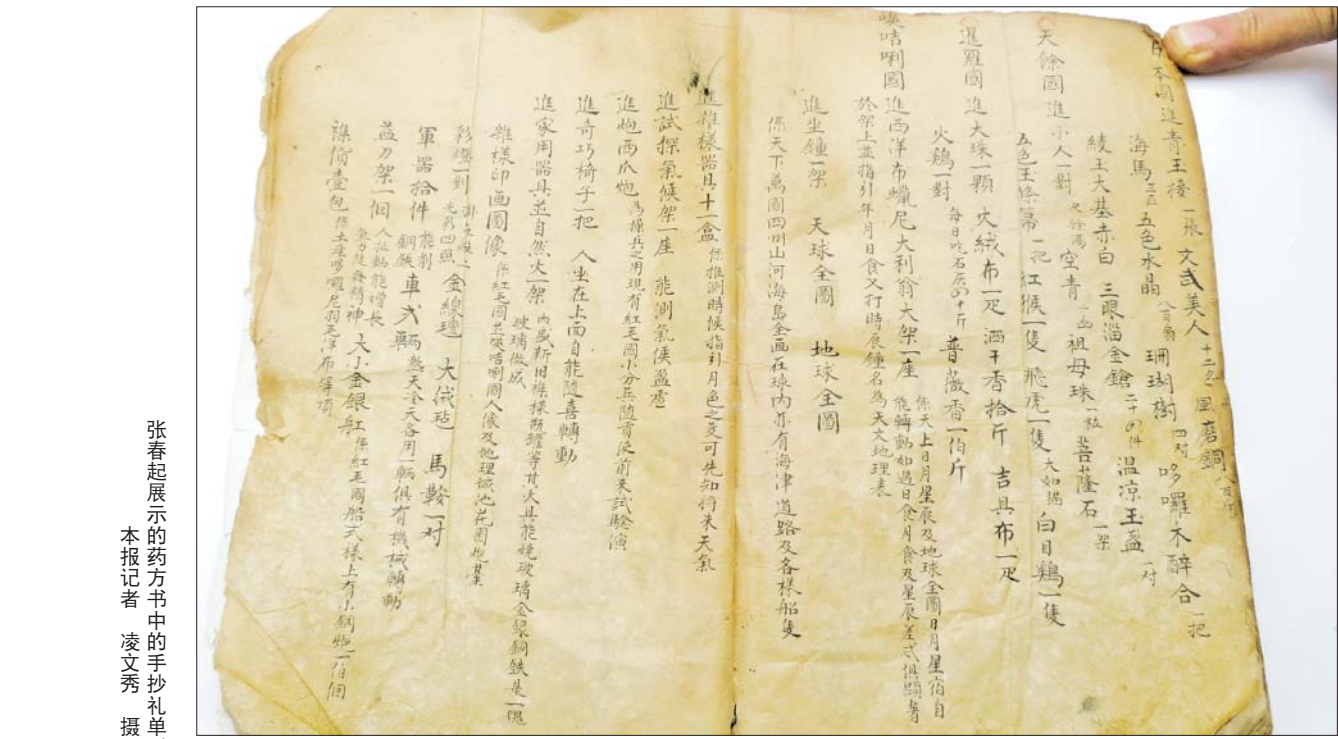 日本國進青玉 一張 文武美人十二名 風磨銅八百斤
海馬三匹 五色水晶八百 珊瑚樹四对 哆囉木醉合一把
綾玉大基赤白 三眼淄金鎗二十四件 温凉玉盃一对
天餘國 進小人一對 尺餘高 空青一 祖母珠一粒 菩薩石一架
五色玉條簾一把 紅猴一隻 飛虎一隻 大如猫 白目鷄一隻
暹羅國 進大珠一顆 火絨布一疋 洒干香拾斤 吉具布一疋
火鷄一對 每日吃石灰四十斤 普薇香一伯斤
㗆咭唎國 進西洋布蠟尼大利翁大架一座 係天上日月星辰及地球全圖日月星宿自能轉動如遇日食月食及星辰差式俱顕著
於架上並指引年月日食又打時辰鍾名為天文地理表
進坐鐘一架 天球全圖 地球全圖
係天下萬國四州山河海島全画在球内亦有海津道路及各樣船隻
進雜樣器具十一盒 係推測時候指引月色之变可先知將来天氣
進試探氣候架一座 能測氣候盈虛
進炮西瓜炮 為操兵之用現有紅毛國小分兵随貢使前来試驗演
進奇巧椅子一把 人坐在上面自能随喜轉動
進家用器具並自然火一架 内盛新旧襍樣瓶罐等其火具能燒玻璃金銀銅鉄是一塊玻璃做成
雜樣印画圖像 係紅毛國並㗆咭唎國人像及地理城池花園
彩燈一對 光彩四照 金線毯 大绒毡 馬鞍一对
軍器拾件 能削鋼鉄 車弍輛 熱天冷天各用一輛俱有機械轉動
益力架一個 人扯動能增長氣力陡發精神 大小金銀舡 係紅毛國船式樣上有小銅炮一伯個
襍貨壹包 係土産哆囉尼羽毛洋布等項
张春起展示的药方书中的手抄礼单
本报记者 凌文秀 摄